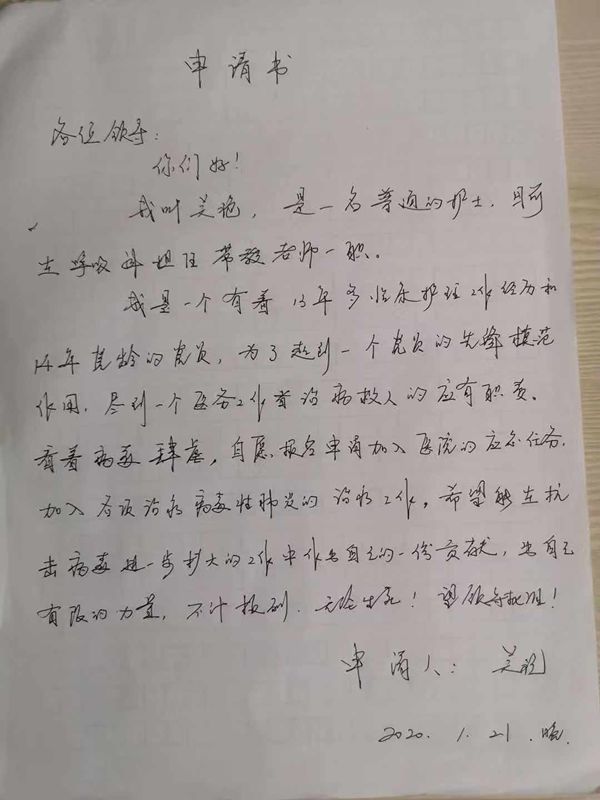 申请书
各位领导：
你们好！
我叫吴艳，是一名普通的护士，目前
在呼吸科担任带教老师一职。
我是一个有着13年多临床护理工作经历和
14年党龄的党员，为了起到一个党员的先锋模范
作用，尽到一个医务工作者治病救人的应有职责。
看着病毒肆虐，自愿报名申请加入医院的应急任务，
加入各项治疗病毒性肺炎的治疗工作，希望能在抗
击病毒进一步扩大的工作中作出自己的一份贡献，出自己
有限的力量，不计报酬，无论生死！望领导批准！
申请人：吴艳
2020.1.21.晚.